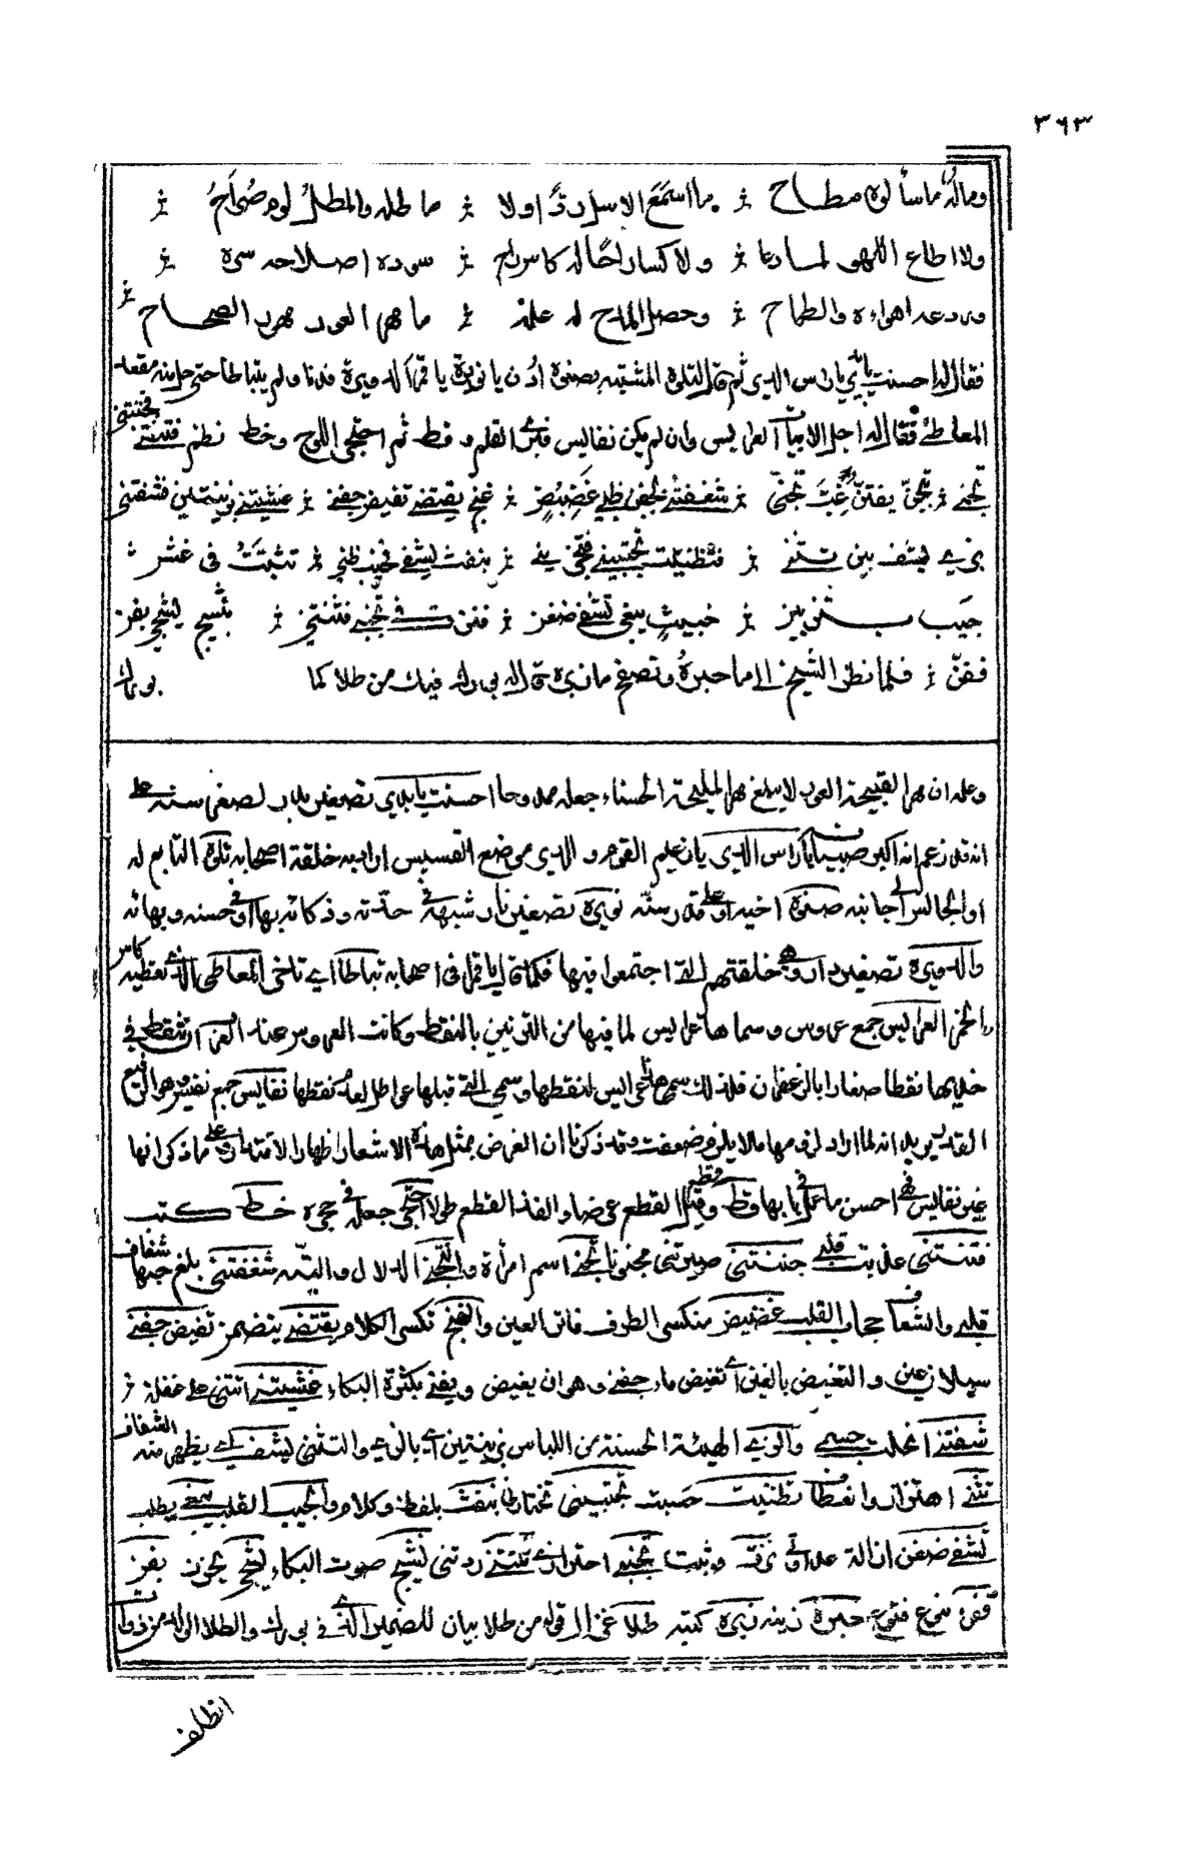 ٣٦٣
وماله ما سألوه مطاح ؞ ما اسمع الآمل ردا ولا ؞ ماطله والمطل لوم صراح ؞
ولا اطاع اللهو لما دعا ؞ ولا كسا راحا له كاس راح ؞ سوده اصلاحه سره ؞
وردعه اهواءه والطماح ؞ وحصل المدح له علمه ؞ ما مهر العور مهور الصحاح ؞
فقال له احسنت يا بدير يا راس الدير ثم قال لتلوه المشتبه بصنوه ادن يا نويرة يا قمر الدويرة فدنا ولم يتباطأ حتى حل منه مقعد
المعاطي فقال له اجل الابيات العرايس وان لم يكن نفايس فبرى القلم وقط ثم احتجر اللوح وخط نظم فتنتني فجننتني
تجني ؞ بتجن يفتن غب تجني ؞ شغفتني بجفن ظبي غضيض ؞ غنج يقتضي تغيض جفني ؞ غشيتني بزينتين فشفتني
بزي يشف بين تثني ؞ فتظنيت تجتبيني فتجزيني ؞ بنفث يشفي فخيب ظني ؞ ثبتت في غش
جيب بتزيين ؞ خبيث يبغي تشفي ضغن ؞ فنزت في تجنبي فثنتني ؞ بنشيج يشجي بفن
ففن ؞ فلما نظر الشيخ الى ما حبره وتصفح ما زبره قال له بورك فيك من طلا كما بورك
وعلم ان مهر القبيحة العور لا يبلغ مهر المليحة الحسناء جعله ممدوحا احسنت يا بدير تصغير بدر لصغر سنه على
انه قد زعم انه اكبر صبيانه يا راس الدير يا زعيم القوم والدير موضع القسيس اراد به حلقة اصحابه تلوه التابع له
او الجالس الى جانبه صنوه اخيه او على قدر سنه نويرة تصغير نار شبهه في حدته وذكائه بها او في حسنه وبهائه
والدويرة تصغير دار وهي حلقتهم التي اجتمعوا فيها فكما قال يا قمر في اصحابه تباطأ اي تاخر المعاطي الذي تعطيه كاس
الخمر العرايس جمع عروس وسماها عرايس لما فيها من التزيين بالنقط وكانت العروس عند العرب تنقط في
خديها نقطا صغارا بالزعفران فلذلك سمي هذه عرايس لنقطها وسمي التي قبلها عواطل لعدم نقطها نفايس جمع نفيس وهو الرفيع
القدر يريد انه لما اراد لزومها ما لا يلزم ضعفت وقد ذكرنا ان الغرض بمثل هذه الاشعار اظهار الاقتدار على ما ذكر انها
غير نفايس فهي احسن ما عمل في بابها قط وقيل القط القطع عرضا والقد القطع طولا احتجر جعله في حجره خط كتب
فتنتني عذبت قلبي جننتني صيرتني مجنونا تجني اسم امرأة والتجني الدلال والتيه شغفتني بلغ حبها شغاف
قلبي والشغاف حجاب القلب غضيض منكسر الطرف فاتر العين والغنج تكسر الكلام يقتضي يتضمن تغيض جفني
سيلان عين والتغيض بالغين اي تغيض ماء جفني وهو ان يغيض ويفنى بكثرة البكاء غشيتني اتتني على غفلة ؞
شفتني انحلت جسمي والزي الهيئة الحسنة من اللباس زينتين اي بالزي والتثني يشف اي يظهر منه الشفاف
تثني اهتزاز وانعطاف تظنيت حسبت تجتبيني تختارني بنفث بلفظ وكلام والجيب القلب يبغي يطلب
تشفي ضغن ازالة عداوة نزت وثبت تجنبي احترازي ثنتني ردتني نشيج صوت البكاء يشجي يحزن بفن
ففن نوع فنوع حبره زينه زبره كتبه طلا غزال قوله من طلا بيان للضمير الذي في بورك والطلا الولد من ذوات
الظلف